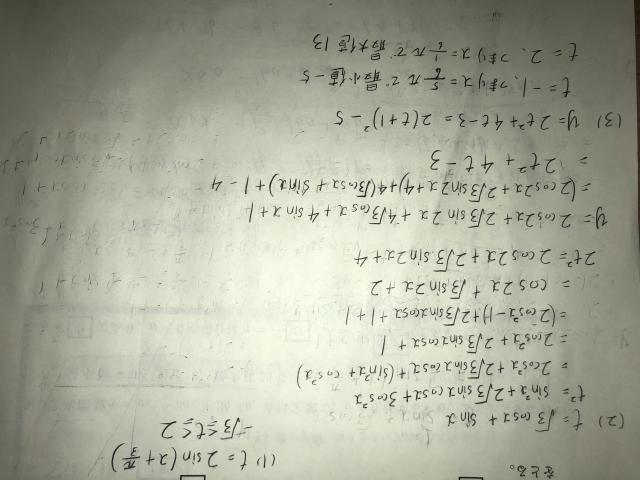 (1) t = 2 sin (x + π/3)
-√3 ≦ t ≦ 2
(2) t = √3 cosx + sinx
t² = sin²x + 2√3 sinxcosx + 3cos²x
= 2cos²x + 2√3 sinxcosx + (sin²x + cos²x)
= 2cos²x + 2√3 sinxcosx + 1
= (2cos²x - 1) + 2√3 sinxcosx + 1 + 1
= cos2x + √3 sin2x + 2
2t² = 2cos2x + 2√3 sin2x + 4
y = 2cos2x + 2√3 sin2x + 4√3 cosx + 4 sinx + 1
= (2cos2x + 2√3 sin2x + 4) + 4(√3 cosx + sinx) + 1 - 4
= 2t² + 4t - 3
(3) y = 2t² + 4t - 3 = 2(t+1)² - 5
t = -1, つまり x = 5/6 π で 最小値 -5
t = 2, つまり x = 1/6 π で 最大値 13